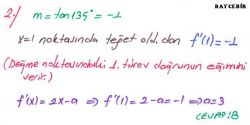 BAYCEBİR
2-) m=tan135°=-1
x=1 noktasında teğet old. dan f'(1)=-1
(Değme noktasındaki 1. türev doğrunun eğimini
verir.)
f'(x)=2x-a ⇒ f'(1)=2-a=-1 ⇒ a=3
CEVAP:B